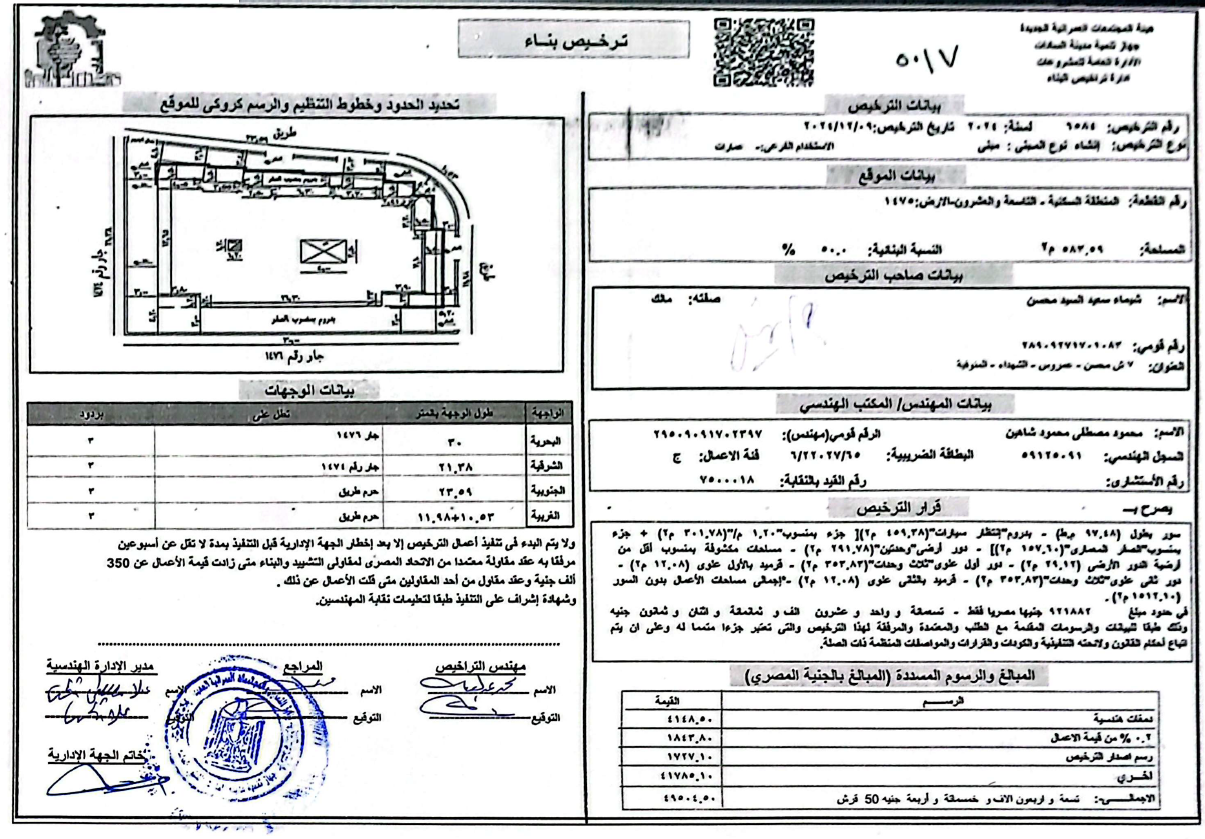 هيئة المجتمعات العمرانية الجديدة
جهاز تنمية مدينة السادات
الأدارة العامة للمشروعات
ادارة تراخيص البناء
٥٠١٧
ترخيص بناء
بيانات الترخيص
رقم الترخيص: ٦٥٨٤ لسنة: ٢٠٢٤ تاريخ الترخيص: ٢٠٢٤/١٢/٠٩
نوع الترخيص: إنشاء نوع المبنى: مبنى الاستخدام الفرعى:- عمارات
بيانات الموقع
رقم القطعة: المنطقة السكنية - التاسعة والعشرون-الارض:١٤٧٥
المساحة: ٥٨٣,٥٩ م٢ النسبة البنائية: ٥٠.٠ %
بيانات صاحب الترخيص
الاسم: شيماء سعيد السيد محسن صفته: مالك
رقم قومي: ٢٨٩٠٩٢٧١٧٠١٠٨٣
العنوان: ٧ ش محسن - عمروس - الشهداء - المنوفية
بيانات المهندس/ المكتب الهندسي
الاسم: محمود مصطفى محمود شاهين الرقم قومي(مهندس): ٢٩٥٠٩٠٩١٧٠٢٣٩٧
السجل الهندسي: ٥٩١٢٥٠٩١ البطاقة الضريبية: ٦/٢٢٠٢٧/٦٥ فئة الاعمال: ج
رقم الأستشارى: رقم القيد بالنقابة: ٧٥٠٠٠١٨
يصرح بـ قرار الترخيص
سور بطول (٩٧,٤٨ م.ط) - بدروم"إنتظار سيارات"(٤٥٩,٣٨ م٢)[ جزء بمنسوب"١,٢٠ م/"(٣٠١,٧٨ م٢) + جزء
بمنسوب"الصفر المعمارى"(١٥٧,٦٠ م٢)] - دور أرضي"وحدتين"(٢٩١,٧٨ م٢) - مساحات مكشوفة بمنسوب أقل من
أرضية الدور الأرضي (٢٩,١٢ م٢) - دور أول علوى"ثلاث وحدات"(٣٥٣,٨٣ م٢) - قرميد بالأول علوى (١٢,٠٨ م٢) -
دور ثانى علوى"ثلاث وحدات"(٣٥٣,٨٣ م٢) - قرميد بالثانى علوى (١٢,٠٨ م٢) -"إجمالى مساحات الأعمال بدون السور
(١٥١٢,١٠ م٢).
في حدود مبلغ ٩٢١٨٨٢ جنيها مصريا فقط - تسعمائة و واحد و عشرون الف و ثمانمائة و اثنان و ثمانون جنيه
وذلك طبقا للبيانات والرسومات المقدمة مع الطلب والمعتمدة والمرفقة لهذا الترخيص والتى تعتبر جزءا متمما له وعلى ان يتم
اتباع أحكام القانون ولائحته التنفيذية والكودات والقرارات والمواصفات المنظمة ذات الصلة.
المبالغ والرسوم المسددة (المبالغ بالجنية المصري)
الرســـم القيمة
دمغات هندسية ٤١٤٨,٥٠
٠.٢ % من قيمة الاعمال ١٨٤٣,٨٠
رسم اصدار الترخيص ١٧٢٧,١٠
اخري ٤١٧٨٥,١٠
الاجمالـــى:- تسعة و اربعون الاف و خمسمائة و أربعة جنيه 50 قرش ٤٩٥٠٤,٥٠
تحديد الحدود وخطوط التنظيم والرسم كروكى للموقع
طريق
٢٣,٥٩
بدروم بمنسوب الصفر
جار رقم ١٤٧٤
طريق
بدروم بمنسوب الصفر
٣٠,٠٠
جار رقم ١٤٧٦
بيانات الوجهات
الواجهة طول الوجهة بالمتر تطل على بردود
البحرية ٣٠ جار ١٤٧٦ ٣
الشرقية ٢١,٣٨ جار رقم ١٤٧٤ ٣
الجنوبية ٢٣,٥٩ حرم طريق ٣
الغربية ١١,٩٨+١٠,٥٣ حرم طريق ٣
ولا يتم البدء فى تنفيذ أعمال الترخيص إلا بعد إخطار الجهة الإدارية قبل التنفيذ بمدة لا تقل عن أسبوعين
مرفقا به عقد مقاولة معتمدا من الاتحاد المصرى لمقاولى التشييد والبناء متى زادت قيمة الأعمال عن 350
ألف جنية وعقد مقاول من أحد المقاولين متى قلت الأعمال عن ذلك .
وشهادة إشراف على التنفيذ طبقا لتعليمات نقابة المهندسين.
مهندس التراخيص المراجع مدير الإدارة الهندسية
الاسم الاسم الاسم
التوقيع التوقيع التوقيع
خاتم الجهة الإدارية